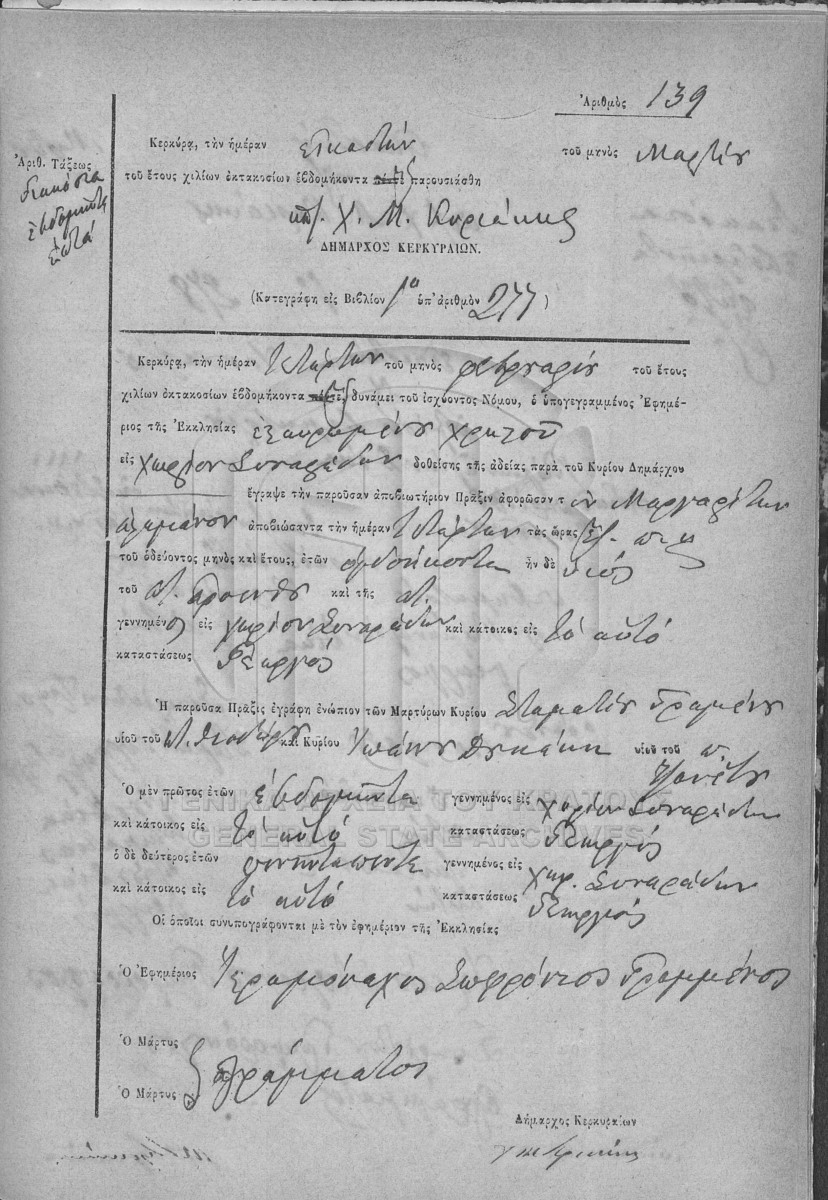 Ἀριθμὸς 139
Ἀριθ. Τάξεως
διακόσια
ἑβδομῆντα
ἑπτά
Κερκύρᾳ, τὴν ἡμέραν εἰκοστήν τοῦ μηνὸς Μαρτίου
τοῦ ἔτους χιλίων ὀκτακοσίων ἑβδομήκοντα πέντε ἓξ παρουσιάσθη
Χ. Μ. Κυριάκης
ΔΗΜΑΡΧΟΣ ΚΕΡΚΥΡΑΙΩΝ.
(Κατεγράφη εἰς Βιβλίον 1ον ὑπ' ἀριθμὸν 277)
Κερκύρᾳ, τὴν ἡμέραν τετάρτην τοῦ μηνὸς φεβρουαρίου τοῦ ἔτους
χιλίων ὀκτακοσίων ἑβδομήκοντα πέντε ἓξ δυνάμει τοῦ ἰσχύοντος Νόμου, ὁ ὑπογεγραμμένος Ἐφημέ-
ριος τῆς Ἐκκλησίας ἐσταυρωμένου Χριστοῦ
εἰς χωρίον Συναράδων δοθείσης τῆς ἀδείας παρὰ τοῦ Κυρίου Δημάρχου
ἔγραψε τὴν παροῦσαν ἀποβιωτήριον Πρᾶξιν ἀφορῶσαν τὸν Μαργαρίτην
ἀποβιώσαντα τὴν ἡμέραν τετάρτην τὰς ὥρας
τοῦ ὁδεύοντος μηνὸς καὶ ἔτους, ἐτῶν ὀγδοήκοντα ἦν δὲ υἱός
τοῦ καὶ τῆς
γεννημένος εἰς χωρίον Συναράδων καὶ κάτοικος εἰς τὸ αὐτό
καταστάσεως Γεωργός
Ἡ παροῦσα Πρᾶξις ἐγράφη ἐνώπιον τῶν Μαρτύρων Κυρίου Σταματίου Γραμμένου
υἱοῦ τοῦ Θεοδώρου καὶ Κυρίου Ἰωάννου υἱοῦ τοῦ
Ὁ μὲν πρῶτος ἐτῶν ἑβδομῆντα γεννημένος εἰς χωρίον Συναράδων
καὶ κάτοικος εἰς τὸ αὐτό καταστάσεως Γεωργός
ὁ δὲ δεύτερος ἐτῶν πενηνταπέντε γεννημένος εἰς χωρ. Συναράδων
καὶ κάτοικος εἰς τὸ αὐτό καταστάσεως Γεωργός
Οἱ ὁποῖοι συνυπογράφονται μὲ τὸν ἐφημέριον τῆς Ἐκκλησίας
Ὁ Ἐφημέριος Ἱερομόναχος Σωφρόνιος Γραμμένος
Ὁ Μάρτυς
ἀγράμματος
Ὁ Μάρτυς
Δήμαρχος Κερκυραίων
ΓΕΝΙΚΑ ΑΡΧΕΙΑ ΤΟΥ ΚΡΑΤΟΥΣ
GENERAL STATE ARCHIVES